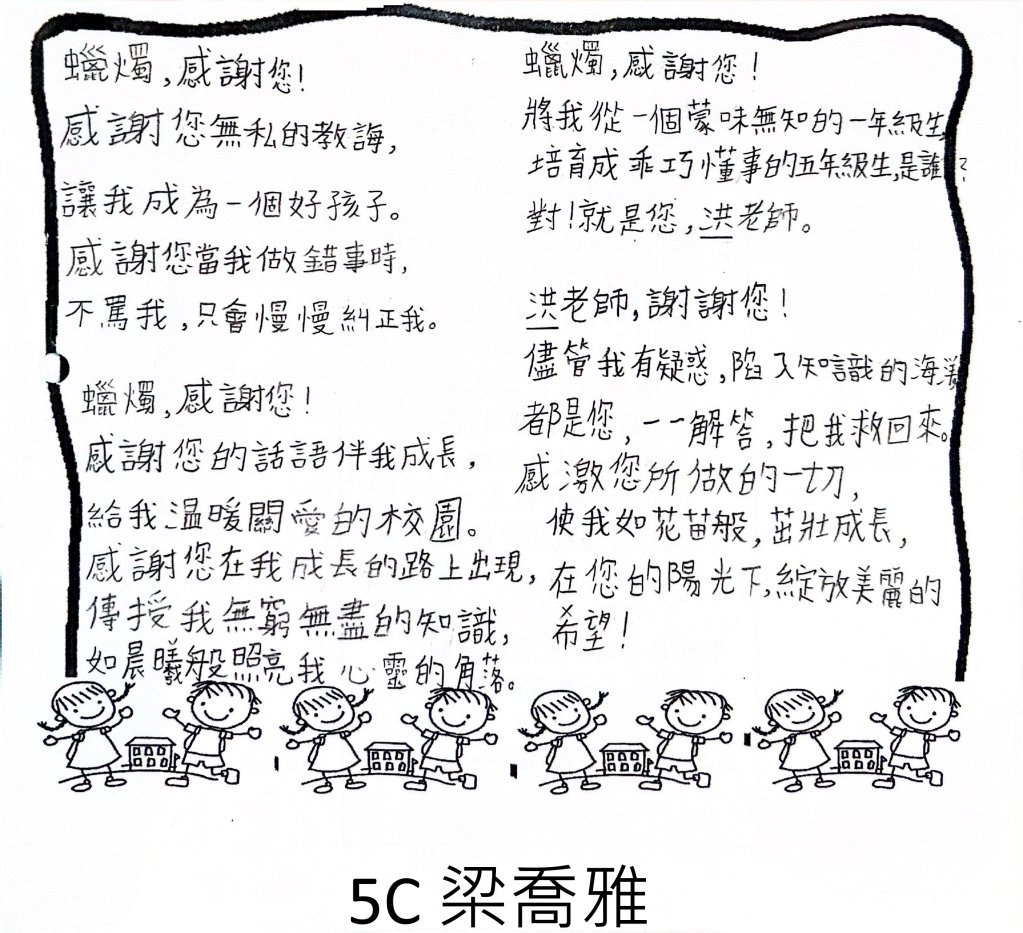 蠟燭，感謝您！
感謝您無私的教誨，
讓我成為一個好孩子。
感謝您當我做錯事時，
不罵我，只會慢慢糾正我。
蠟燭，感謝您！
感謝您的話語伴我成長，
給我溫暖關愛的校園。
感謝您在我成長的路上出現，
傳授我無窮無盡的知識，
如晨曦般照亮我心靈的角落。
蠟燭，感謝您！
將我從一個蒙昧無知的一年級生，
培育成乖巧懂事的五年級生，是誰？
對！就是您，洪老師。
洪老師，謝謝您！
儘管我有疑惑，陷入知識的海洋
都是您，一一解答，把我救回來。
感激您所做的一切，
使我如花苗般，茁壯成長，
在您的陽光下，綻放美麗的
希望！
5C 梁喬雅